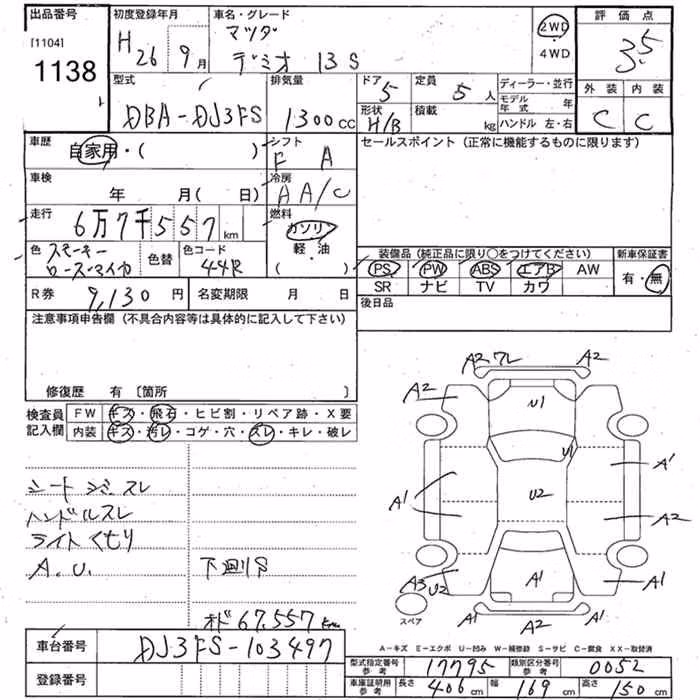 出品番号 初度登録年月 車名・グレード 評価点
[1104] H 26 9月 マツダ 2WD 3.5
1138 デミオ 13S 4WD
型式 排気量 ドア 定員 ディーラー・並行 外装 内装
DBA-DJ3FS 1300cc 5 5人 モデル年式 年 C C
形状 積載 ハンドル 左・右
H/B kg
車歴 自家用・( ) シフト セールスポイント(正常に機能するものに限ります)
F A
車検 年 月(日) 冷房
AA/C
走行 6万7千557km 燃料
ガソリン
軽・油
( )
色 スモーキーローズマイカ 色替 色コード 44R
装備品(純正品に限り○をつけてください) 新車保証書
PS PW ABS エアB AW 有・無
SR ナビ TV カワ
R券 9,130円 名変期限 月 日 後日品
注意事項申告欄(不具合内容等は具体的に記入して下さい)
修復歴 有〔箇所 〕
検査員記入欄 FW キズ・飛石・ヒビ割・リペア跡・X要
内装 キズ・汚レ・コゲ・穴・スレ・キレ・破レ
A2 ワレ A2
A2 U1 A2
U1
A1 U2 A1
A2
A3 U2 A1 A1
A1 A2 A1
スペア
シートシミスレ
ハンドルスレ
ライトくもり
A.U. 下廻りS
オド 67,557km
A-キズ E-エクボ U-凹み W-補修跡 S-サビ C-腐食 XX-取替済
車台番号 DJ3FS-103497
登録番号
型式指定番号 参考 17795 類別区分番号 参考 0052
車庫証明用 参考 長さ 406cm 幅 169cm 高さ 150cm